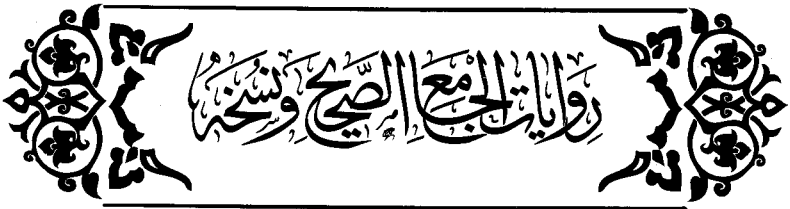 رِوَايَات الجَامع الصَّحِيح وَنُسَخُهُ